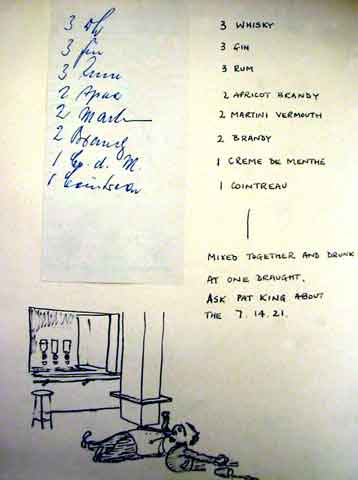 3 Wh
3 Gin
3 Rum
2 Aprc
2 Mart
2 Brandy
1 Cr. d. M.
1 Cointreau
3 WHISKY
3 GIN
3 RUM
2 APRICOT BRANDY
2 MARTINI VERMOUTH
2 BRANDY
1 CREME DE MENTHE
1 COINTREAU
MIXED TOGETHER AND DRUNK
AT ONE DRAUGHT.
ASK PAT KING ABOUT
THE 7.14.21.